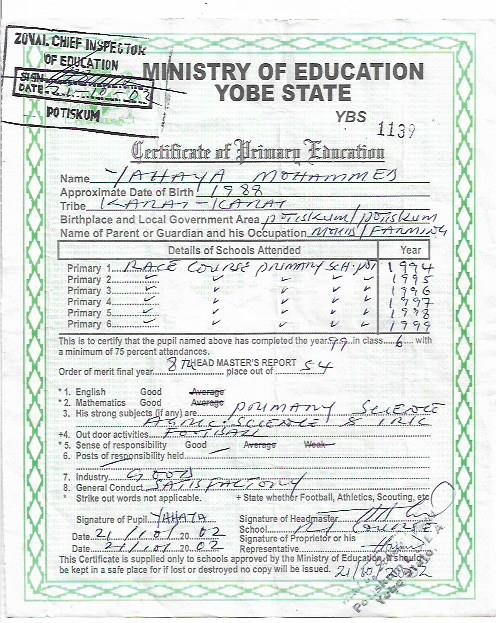 ZONAL CHIEF INSPECTOR
OF EDUCATION
SIGN
DATE 21-10-02
POTISKUM
MINISTRY OF EDUCATION
YOBE STATE
YBS 1139
Certificate of Primary Education
Name YAHAYA MOHAMMED
Approximate Date of Birth 1988
Tribe KARAI-KARAI
Birthplace and Local Government Area POTISKUM/POTISKUM
Name of Parent or Guardian and his Occupation MOHD/FARMING
Details of Schools Attended Year
Primary 1 RACE COURSE PRIMARY SCH. POT 1994
Primary 2 ✓ ✓ ✓ ✓ 1995
Primary 3 ✓ ✓ ✓ ✓ 1996
Primary 4 ✓ ✓ ✓ ✓ 1997
Primary 5 ✓ ✓ ✓ ✓ 1998
Primary 6 ✓ ✓ ✓ ✓ 1999
This is to certify that the pupil named above has completed the year 99 in class 6 with
a minimum of 75 percent attendances.
HEAD MASTER'S REPORT
Order of merit final year 8TH place out of 54
* 1. English Good Average
* 2. Mathematics Good Average
3. His strong subjects (if any) are PRIMARY SCIENCE
AGRIC. SCIENCE & IRK
+4. Out door activities FOOTBALL
* 5. Sense of responsibility Good Average Weak
6. Posts of responsibility held
7. Industry GOOD
8. General Conduct SATISFACTORY
* Strike out words not applicable. + State whether Football, Athletics, Scouting, etc
Signature of Pupil YAHAYA Signature of Headmaster
School R/COURSE
Date 21/10/2002 Signature of Proprietor or his
Date 21/10/2002 Representative
This Certificate is supplied only to schools approved by the Ministry of Education. It should
be kept in a safe place for if lost or destroyed no copy will be issued. 21/10/2002